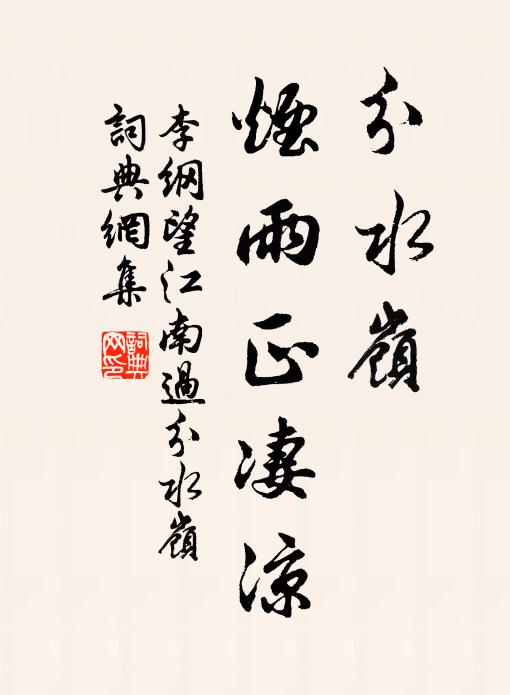 分水嶺
煙雨正淒涼
李綱望江南過分水嶺
詞典網集
詞典
网印